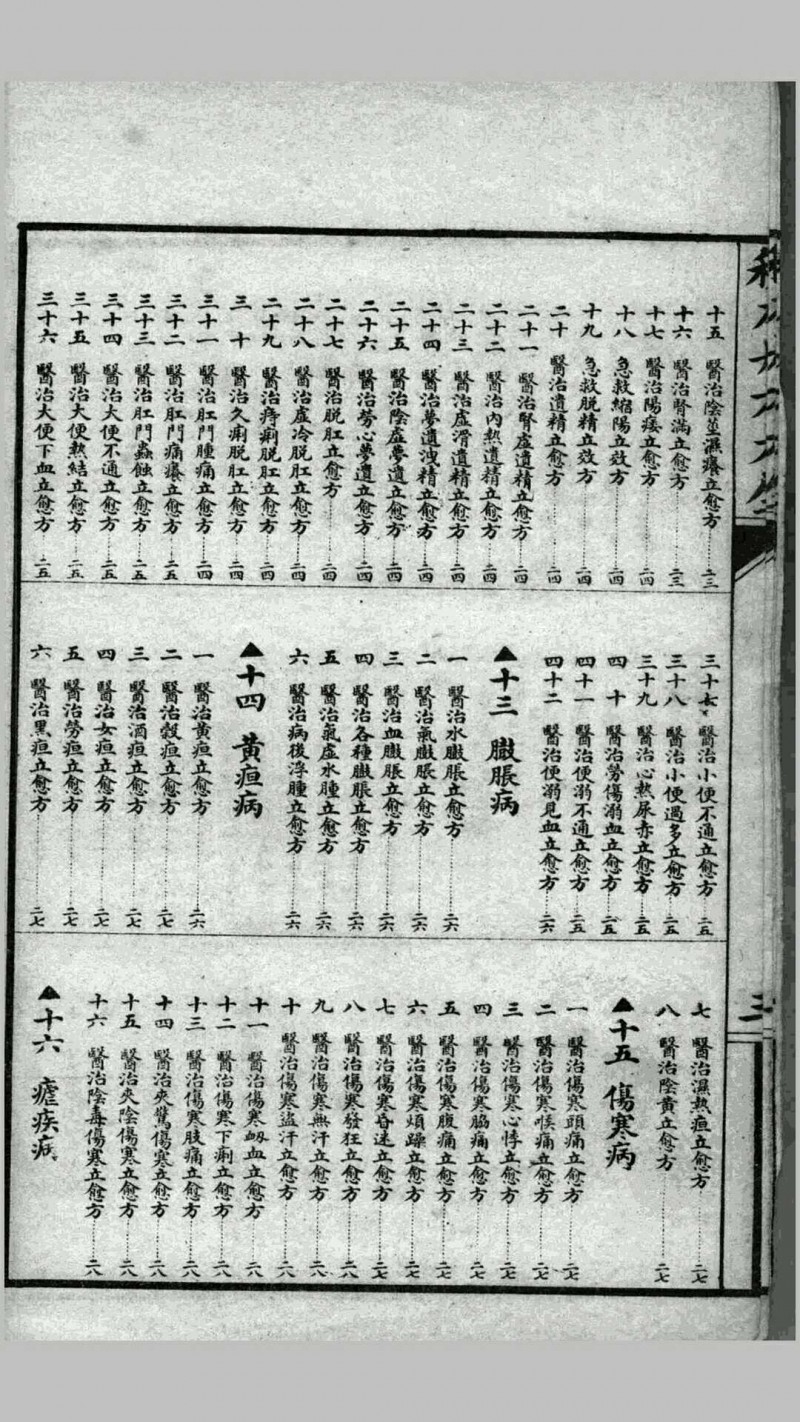 十五 醫治陰莖濕癢立愈方……二三
十六 醫治腎滿立愈方……二三
十七 醫治陽痿立愈方……二四
十八 急救縮陽立效方……二四
十九 急救脫精立效方……二四
二十 醫治遺精立愈方……二四
二十一 醫治腎虛遺精立愈方……二四
二十二 醫治內熱遺精立愈方……二四
二十三 醫治虛滑遺精立愈方……二四
二十四 醫治夢遺洩精立愈方……二四
二十五 醫治陰虛夢遺立愈方……二四
二十六 醫治勞心夢遺立愈方……二四
二十七 醫治脫肛立愈方……二四
二十八 醫治虛冷脫肛立愈方……二四
二十九 醫治痔痢脫肛立愈方……二四
三十 醫治久痢脫肛立愈方……二四
三十一 醫治肛門腫痛立愈方……二四
三十二 醫治肛門痛癢立愈方……二五
三十三 醫治肛門蟲蝕立愈方……二五
三十四 醫治大便不通立愈方……二五
三十五 醫治大便熱結立愈方……二五
三十六 醫治大便下血立愈方……二五
三十七 醫治小便不通立愈方……二五
三十八 醫治小便過多立愈方……二五
三十九 醫治心熱尿赤立愈方……二五
四十 醫治勞傷溺血立愈方……二五
四十一 醫治便溺不通立愈方……二五
四十二 醫治便溺見血立愈方……二六
▲十三 臌脹病
一 醫治水臌脹立愈方……二六
二 醫治氣臌脹立愈方……二六
三 醫治血臌脹立愈方……二六
四 醫治各種臌脹立愈方……二六
五 醫治氣虛水腫立愈方……二六
六 醫治病後浮腫立愈方……二六
▲十四 黃疸病
一 醫治黃疸立愈方……二六
二 醫治穀疸立愈方……二七
三 醫治酒疸立愈方……二七
四 醫治女疸立愈方……二七
五 醫治勞疸立愈方……二七
六 醫治黑疸立愈方……二七
七 醫治濕熱疸立愈方……二七
八 醫治陰黃立愈方……二七
▲十五 傷寒病
一 醫治傷寒頭痛立愈方……二七
二 醫治傷寒喉痛立愈方……二七
三 醫治傷寒心悸立愈方……二七
四 醫治傷寒脇痛立愈方……二七
五 醫治傷寒腹痛立愈方……二七
六 醫治傷寒煩躁立愈方……二七
七 醫治傷寒昏迷立愈方……二七
八 醫治傷寒發狂立愈方……二八
九 醫治傷寒無汗立愈方……二八
十 醫治傷寒盜汗立愈方……二八
十一 醫治傷寒衂血立愈方……二八
十二 醫治傷寒下痢立愈方……二八
十三 醫治傷寒肢痛立愈方……二八
十四 醫治夾驚傷寒立愈方……二八
十五 醫治夾陰傷寒立愈方……二八
十六 醫治陰毒傷寒立愈方……二八
▲十六 瘧疾病